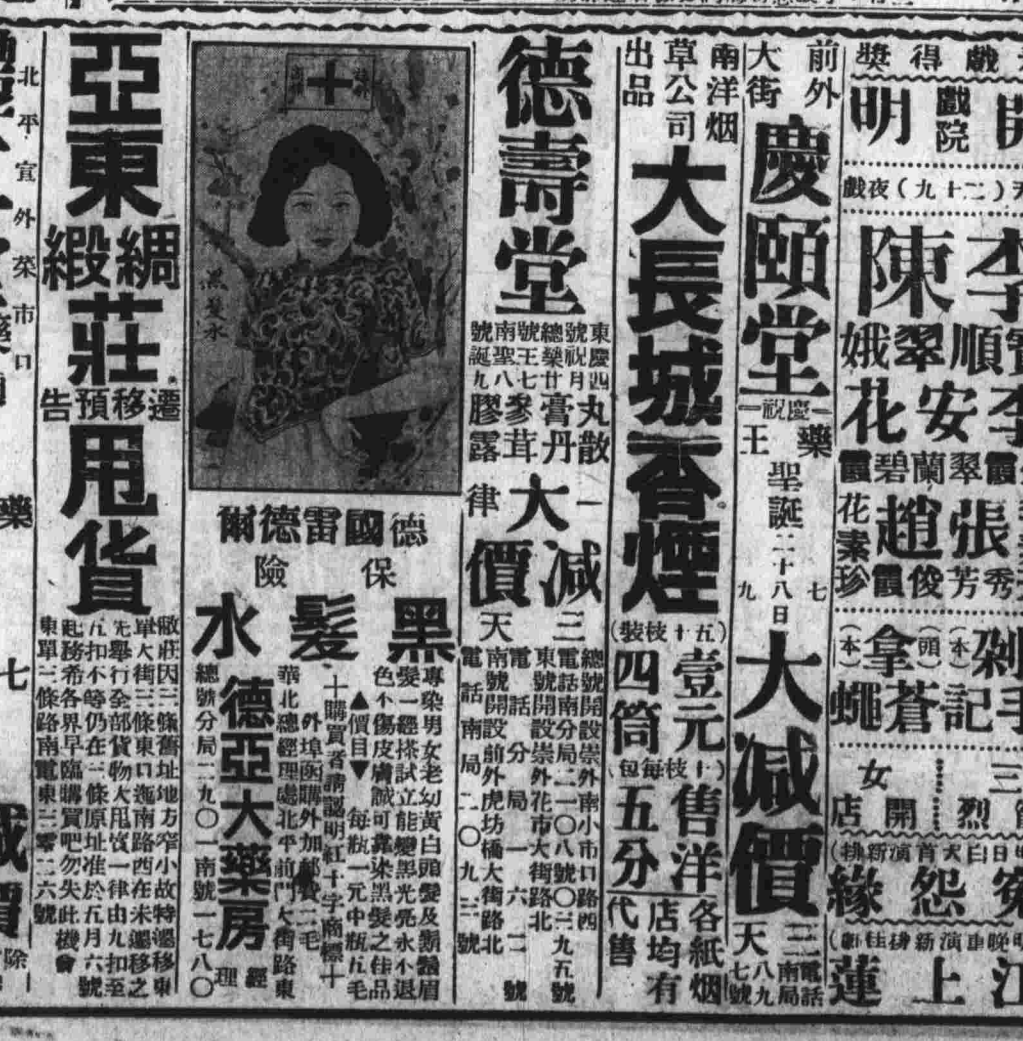 獎得戲
開明
戲院
戲夜（九十二）天
李陳
順翠娥
李安花
霞翠蘭碧霞
張趙
花素珍
秀芳俊霞
剁手記
（本）
（頭）
（本）
拿蒼蠅
三
烈
女開店
排新演首天白日明
冤怨緣
劇佳排新演車晚明
江上蓮
前外
大街
慶頤堂
一慶祝一
藥王
聖誕二十八日
七九
大減價
三天
電話南局八九七號
南洋烟草公司出品
大長城香煙
（五十枝裝）
四筒
壹元
（十枝每包）
售洋五分
各紙烟店均有代售
德壽堂
東號總王南號
慶祝藥王聖誕
四月廿七八九
丸散膏丹參茸膠露
一律大減價
三天
總號開設崇外南小市口路西
電話南分局二一〇八號〇三九五號
東號開設崇外花市大街路北
電話分局一六一二號
南號開設前外虎坊橋大街路北
電話南局二〇九三號
黑髮水
德國雷德爾
保險
黑髮水
專染男女老幼黃白頭髮及鬍鬚眉
髮一經搽試立能變黑光亮永不退
色不傷皮膚誠可靠染黑髮之佳品
▲價目▼每瓶一元中瓶五毛
外埠函購外加郵費二毛
十購買者請認明紅十字商標十
華北總經理處北平前門大街路東
德亞大藥房
經理
總號分局二九〇一南號一七八〇
亞東
綢緞
莊
遷移預告
甩貨
敝莊因三條舊址地方窄小故特遷移東
單大街三條東口迤南路西在未遷移之
先舉行全部貨物大甩賣一律由九扣至
五扣不等仍在三條原址准於五月六號
起務希各界早臨購買吧勿失此機會
東單三條路南電東三零二六號
北平宣外菜市口
藥
七
減價
除